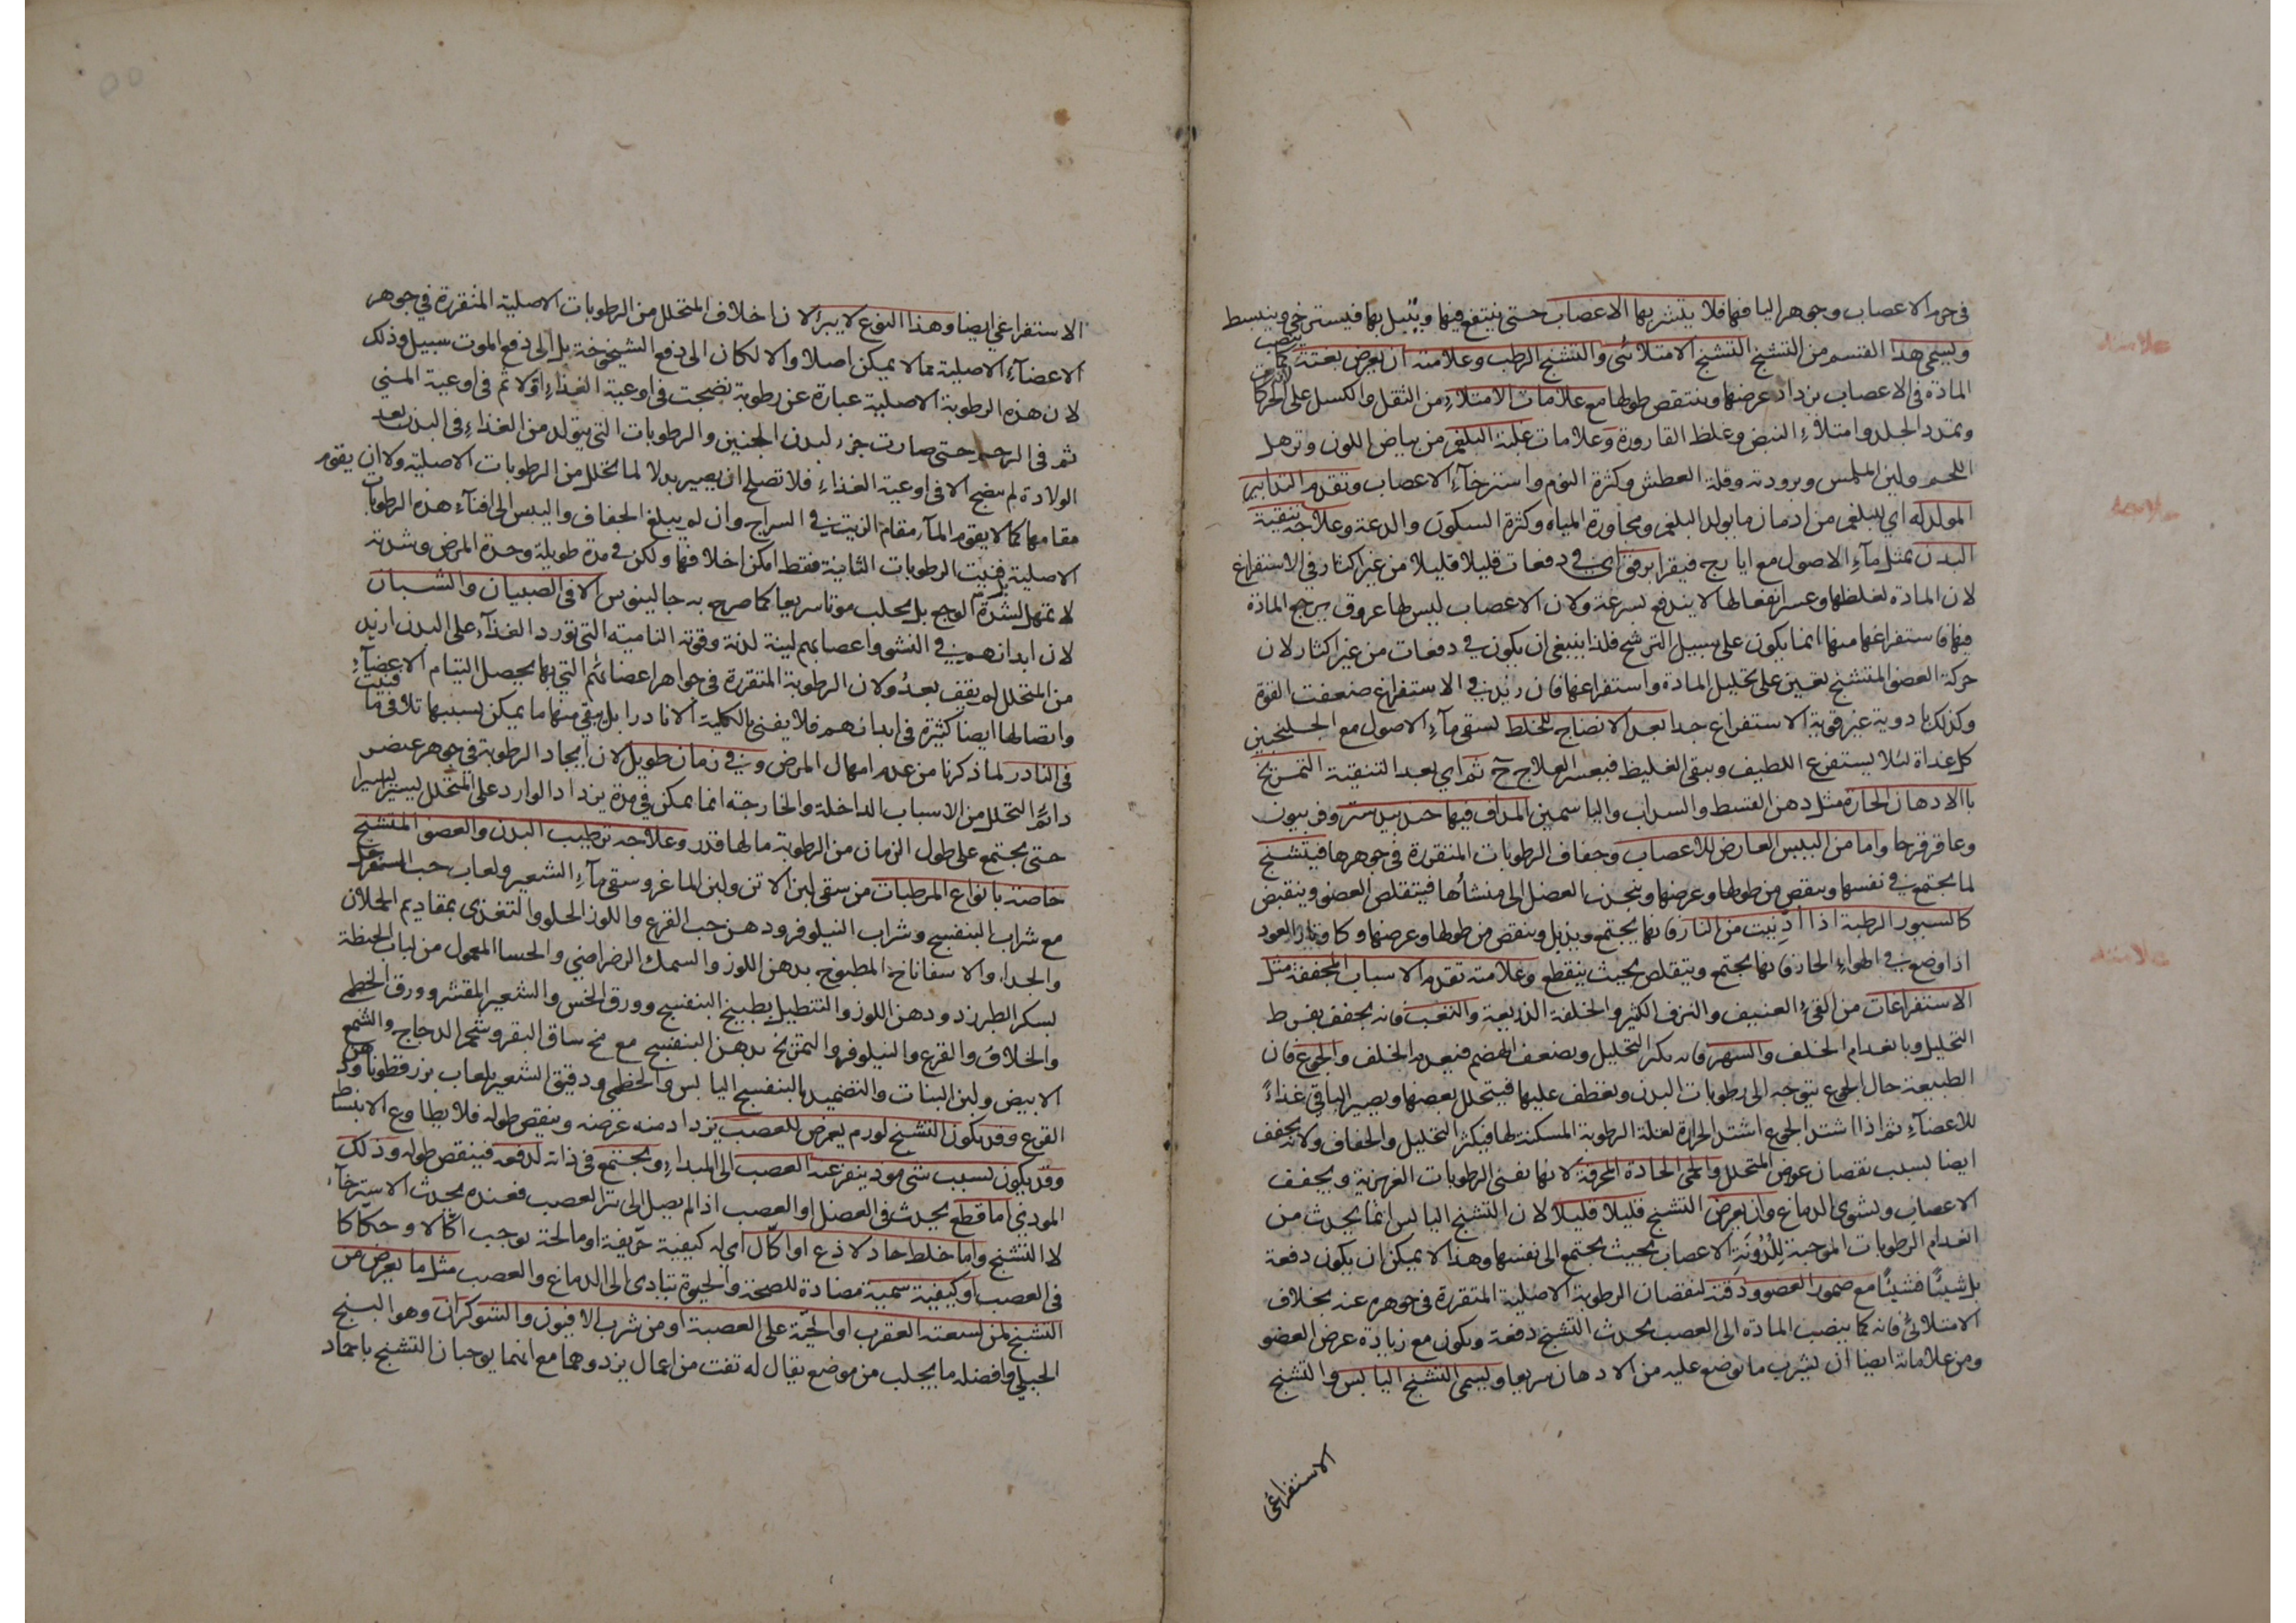 فى جرم الاعصاب وجوهر اليافها فلا يتشربها الاعصاب حتى ينتقع فيها ويبتل بها فيسترخى وينبسط
ويسمى هذا القسم من التشنج التشنج الامتلائى والتشنج الرطب وعلامته ان يعرض بغتة كما ينصب
علامته
المادة فى الاعصاب يزداد عرضها وينتقص طولها مع علامات الامتلاء من الثقل والكسل على الحركات
وتمدد الجلد وامتلاء النبض وغلظ القارورة وعلامات غلبة البلغم من بياض اللون وترهل
اللحم ولين الملمس وبرودته وقلة العطش وكثرة النوم واسترخاء الاعصاب وتقدم التدابير
المولد له اى للبلغم من ادمان ما يولد البلغم ومجاورة المياه وكثرة السكون والدعة وعلاجه تنقية
علاجه
البدن بمثل ماء الاصول مع ايارج فيقرا برفق اى فى دفعات قليلا قليلا من غير اكثار فى الاستفراغ
لان المادة لغلظها وعسر انفعالها لا يندفع بسرعة ولان الاعصاب ليس لها عروق يرجع المادة
فيها فاستفراغها منها انما يكون على سبيل الترشح فلذا ينبغى ان يكون فى دفعات من غير اكثار لان
حركة العضو المتشنج تعين على تحليل المادة واستفراغها فان زيد فى الاستفراغ ضعفت القوة
وكذلك بادوية غير قوية الاستفراغ جدا بعد الانضاج للخلط لسقى ماء الاصول مع الجلنجبين
كل غداة لئلا يستفرغ اللطيف ويبقى الغليظ فيعسر العلاج ح ثم اى بعد التنقية التمريخ
باالادهان الحارة مثل دهن القسط والسداب والياسمين المداف فيها جندبيدستر وفربيون
وعاقرقرحا واما من اليبس العارض للاعصاب وجفاف الرطوبات المتقررة فى جوهرها فيتشنج
لما يجتمع فى نفسها وينقص من طولها وعرضها وينجذب العضل الى منشأها فيتقلص العضو وينقبض
كالسيور الرطبة اذا ادنيت من النار فانها يجتمع ويذبل وينقص من طولها وعرضها وكاوتار العود
اذا وضع فى الهواء الحار فانها يجتمع ويتقلص بحيث ينقطع وعلامته تقدم الاسباب المجففة مثل
علامته
الاستفراغات من القىء العنيف والنزف الكثير والخلفة الذريعة والتعب فانه يجفف بفرط
التحليل وبانعدام الخلف والسهر فانه يكثر التحليل ويضعف الهضم فيعدم الخلف والجوع فان
الطبيعة حال الجوع يتوجه الى رطوبات البدن وتعطف عليها فيتحلل بعضها ويصير الباقى غذاءً
للاعضاء ثم اذا اشتد الجوع اشتد الحرارة لقلة الرطوبة المسكنة لها فيكثر التحليل والجفاف ولانه يجفف
ايضا بسبب نقصان عوض المتحلل والحمى الحادة المحرقة لانها تفنى الرطوبات الغريزية ويجفف
الاعصاب ويشوى الدماغ وان يعرض التشنج قليلا قليلا لان التشنج اليابس انما يحدث من
انعدام الرطوبات الموجبة للدونة الاعصاب بحيث يجتمع الى نفسها وهذا لا يمكن ان يكون دفعة
بل شيئًا فشيئًا مع ضمور العضو ودقته لنقصان الرطوبة الاصلية المتقررة فى جوهره عنه بخلاف
الامتلائى فانه كما ينصب المادة الى العصب يحدث التشنج دفعة ويكون مع زيادة عرض العضو
ومن علاماته ايضا ان يشرب ما توضع عليه من الادهان سريعا ويسمى التشنج اليابس والتشنج
الاستفراغى
الاستفراغى ايضا وهذا النوع لا يبرء لان اخلاف المتحلل من الرطوبات الاصلية المتقررة فى جوهر
الاعضاء الاصلية مما لا يمكن اصلا والا لكان الى دفع الشيخوخة بل الى دفع الموت سبيل وذلك
لان هذه الرطوبة الاصلية عبارة عن رطوبة نضجت فى اوعية الغذاء اولا ثم فى اوعية المنى
ثم فى الرحم حتى صارت جزء لبدن الجنين والرطوبات التى يتولد من الغذاء فى البدن بعد
الولادة لم ينضج الا فى اوعية الغذاء فلا تصلح ان يصير بدلا لما تحلل من الرطوبات الاصلية ولا ان يقوم
مقامها كما لا يقوم الماء مقام الزيت فى السراج وان لم يبلغ الجفاف واليبس الى افناء هذه الرطوبات
الاصلية بل فنيت الرطوبات الثانية فقط امكن اخلافها ولكن فى مدة طويلة وحدة المرض وشدته
لا تمهل لشدة الوجع بل يجلب موتا سريعا كما صرح به جالينوس الا فى الصبيان والشبان
لان ابدانهم فى النشو واعصابهم لينة لدنة وقوته النامية التى تورد الغذاء على البدن ازيد
من المتحلل لم يقف بعدُ ولان الرطوبة المتقررة فى جواهر اعضائهم التى بها يحصل التيام الاعضاء
واتصالها ايضا كثيرة فى ابدانهم فلا يفنى بالكلية الا نادرا بل يبقى منها ما يمكن بسببها تلافى ما فنيت
فى النادر لما ذكرنا من عدم امهال المرض وفى زمان طويل لان ايجاد الرطوبة فى جوهر عضو
دائم التحلل من الاسباب الداخلة والخارجة انما يمكن فى مدة يزداد الوارد على المتحلل يسيرا يسيرا
حتى يجتمع على طول الزمان من الرطوبة ما لها قدر وعلاجه ترطيب البدن والعضو المتشنج
خاصة بانواع المرطبات من سقى لبن الاتن ولبن الماعز وسقى ماء الشعير ولعاب حب السفرجل
مع شراب البنفسج وشراب النيلوفر ودهن حب القرع واللوز الحلو والتغذى بمقاديم الحملان
والجداء والاسفاناخ المطبوخ بدهن اللوز والسمك الرضراضى والحسا المعمول من لباب الحنطة
بسكر الطبرزد ودهن اللوز والتنطيل بطبيخ البنفسج وورق الخس والشعير المقشر وورق الخطمى
والخلاف والقرع والنيلوفر والتمريخ بدهن البنفسج مع مخ ساق البقر وشحم الدجاج والشمع
الابيض ولبن البنات والتضميد بالبنفسج اليابس والخطمى ودقيق الشعير بلعاب بزرقطونا ودهن
القرع وقد يكون التشنج لورم يعرض للعصب يزداد منه عرضه وينقص طوله فلا يطاوع الانبساط
وقد يكون لسبب شى موذ ينفر عنه العصب الى المبداء ويجتمع فى ذاته لدفعه فينقص طوله وذلك
الموذى اما قطع يحدث فى العضل او العصب اذا لم يصل الى تبر العصب فعنده يحدث الاسترخاء
لا التشنج واما خلط حاد لاذع او اكّال اى له كيفية حريفة او مالحة توجب اكالا وحكاكا
فى العصب او كيفية سمية مضادة للصحة والحيوة يتبادى الى الدماغ والعصب مثل ما يعرض من
التشنج لمن لسعته العقرب او الحيّة على العصبة او من شرب الافيون والشوكران وهو البنج
الجبلى وافضله ما يجلب من موضع يقال له تفت من اعمال يزد وهما مع انهما يوجبان التشنج باجماد